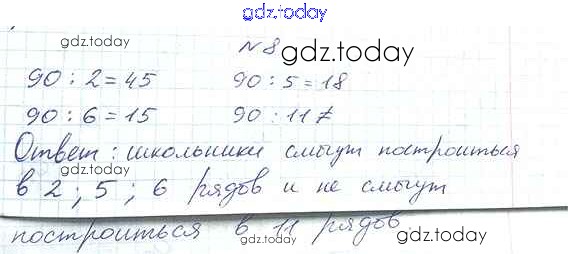 gdz.today
№ 8
gdz.today gdz.today
90 : 2 = 45 90 : 5 = 18
90 : 6 = 15 90 : 11 ≠
gdz.today
Ответ: школьники смогут построиться
в 2; 5; 6 рядов и не смогут
построиться в 11 рядов.
gdz.today
gdz.today